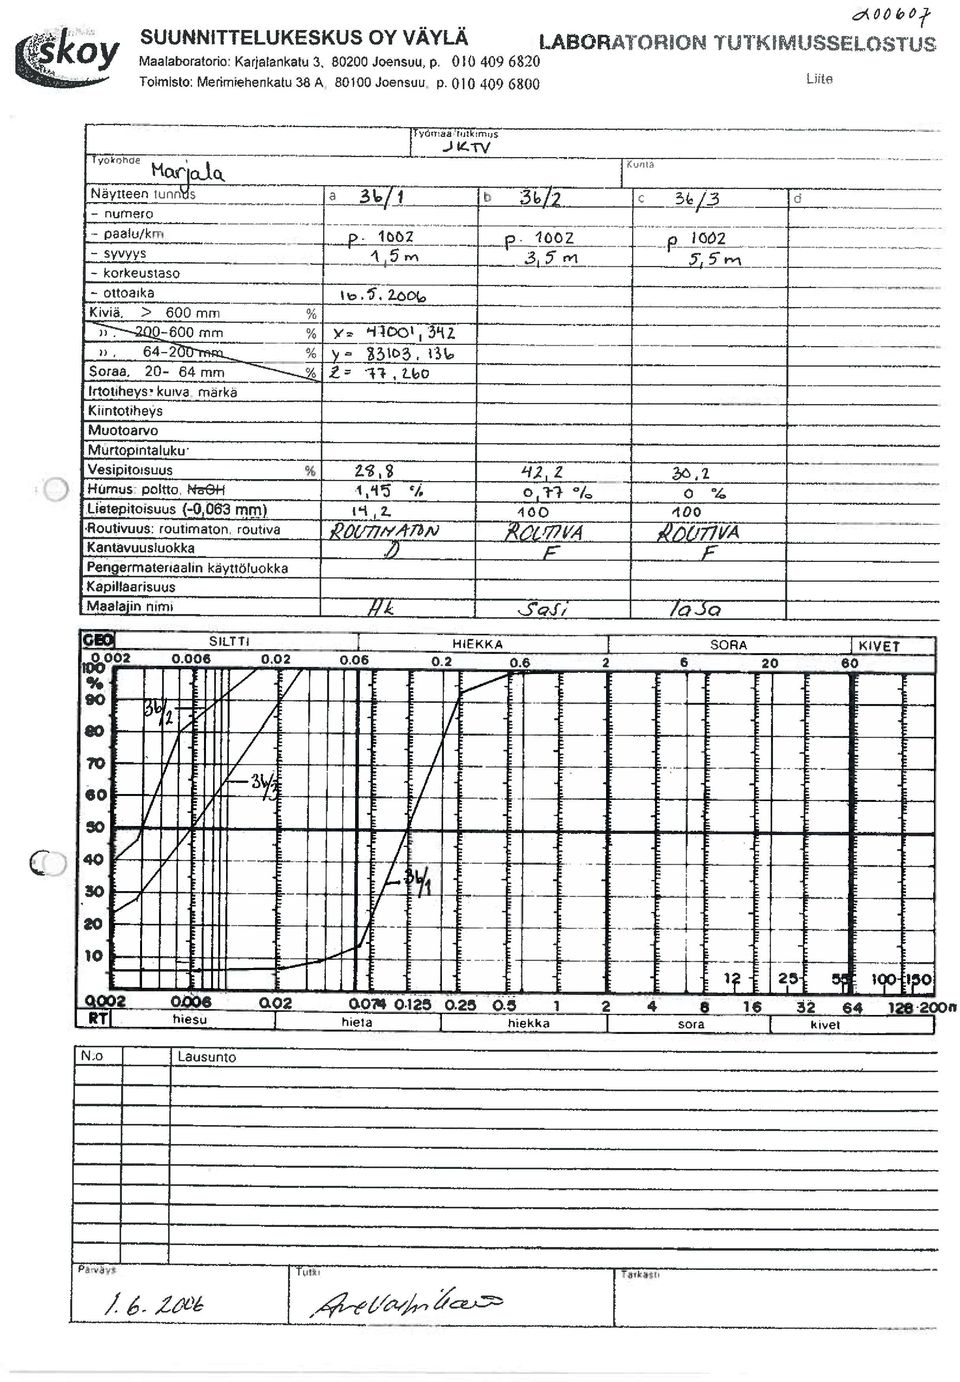 200607
skoy SUUNNITTELUKESKUS OY VÄYLÄ LABORATORION TUTKIMUSSELOSTUS
Maalaboratorio: Karjalankatu 3, 80200 Joensuu, p. 010 409 6820
Toimisto: Merimiehenkatu 38 A, 80100 Joensuu, p. 010 409 6800 Liite
Työmaa Tutkimus
JKTV
Työkohde Marjala Kunta
Näytteen tunnus a 36/1 b 36/2 c 36/3 d
- numero
- paalu/km p. 1002 p. 1002 p 1002
- syvyys 1,5 m 3,5 m 5,5 m
- korkeustaso
- ottoaika 16.5.2006
Kiviä, > 600 mm %
" , 200-600 mm % x= 47001,342
" , 64-200 mm % y= 83103,136
Soraa, 20- 64 mm % z= 77,260
Irtotiheys: kuiva, märkä
Kiintotiheys
Muotoarvo
Murtopintaluku
Vesipitoisuus % 28,8 42,2 30,2
Humus: poltto, NaOH 1,45 % 0,77 % 0 %
Lietepitoisuus (-0,063 mm) 14,2 100 100
Routivuus: routimaton, routiva ROUTIMATON ROUTIVA ROUTIVA
Kantavuusluokka D F F
Pengermateriaalin käyttöluokka
Kapillaarisuus
Maalajin nimi Hk SaSi laSa
GEO SILTTI HIEKKA SORA KIVET
0.002 0.006 0.02 0.06 0.2 0.6 2 6 20 60
100
%
90
36/2
80
70
36/3
60
50
40
36/1
30
20
10
12 25 55 100 150
0,002 0.006 0.02 0.074 0.125 0.25 0.5 1 2 4 8 16 32 64 128 200
RT hiesu hieta hiekka sora kivet
N:o Lausunto
Päiväys Tutki Tarkasti
1.6.2006